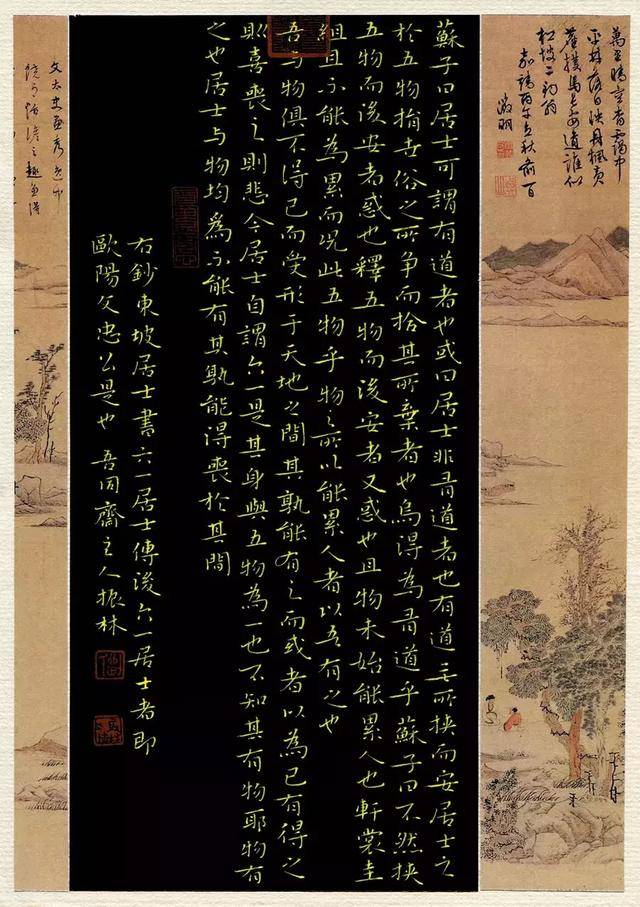 萬里晴空中
平林落日映丹楓黃
馬長安道誰似
松坡二釣翁
嘉靖丙午立秋前
徵明
蘇子曰居士可謂有道者也或曰居士非有道者也有道无所挾而安居士之
於五物捐世俗之所爭而拾其所棄者也烏得為有道乎蘇子曰不然挾
五物而後安者惑也釋五物而後安者又惑也且物未始能累人也軒裳圭
組且不能為累而況此五物乎物之所以能累人者以吾有之也
吾与物俱不得已而受形于天地之間其孰能有之而或者以為己有得之
則喜喪之則悲今居士自謂六一是其身與五物為一也不知其有物耶物有
之也居士与物均為不能有其孰能得喪於其間
右鈔東坡居士書六一居士傳後六一居士者即
歐陽文忠公是也 吾同齋主人振林
文太史畫
之趣